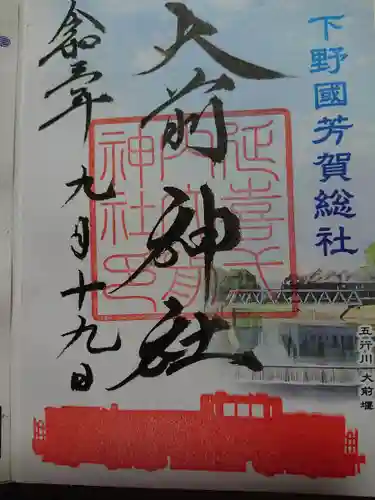 下野國芳賀総社
大前神社
延喜式
内大前
神社之印
令和三年
九月十九日
五行川 大前堰